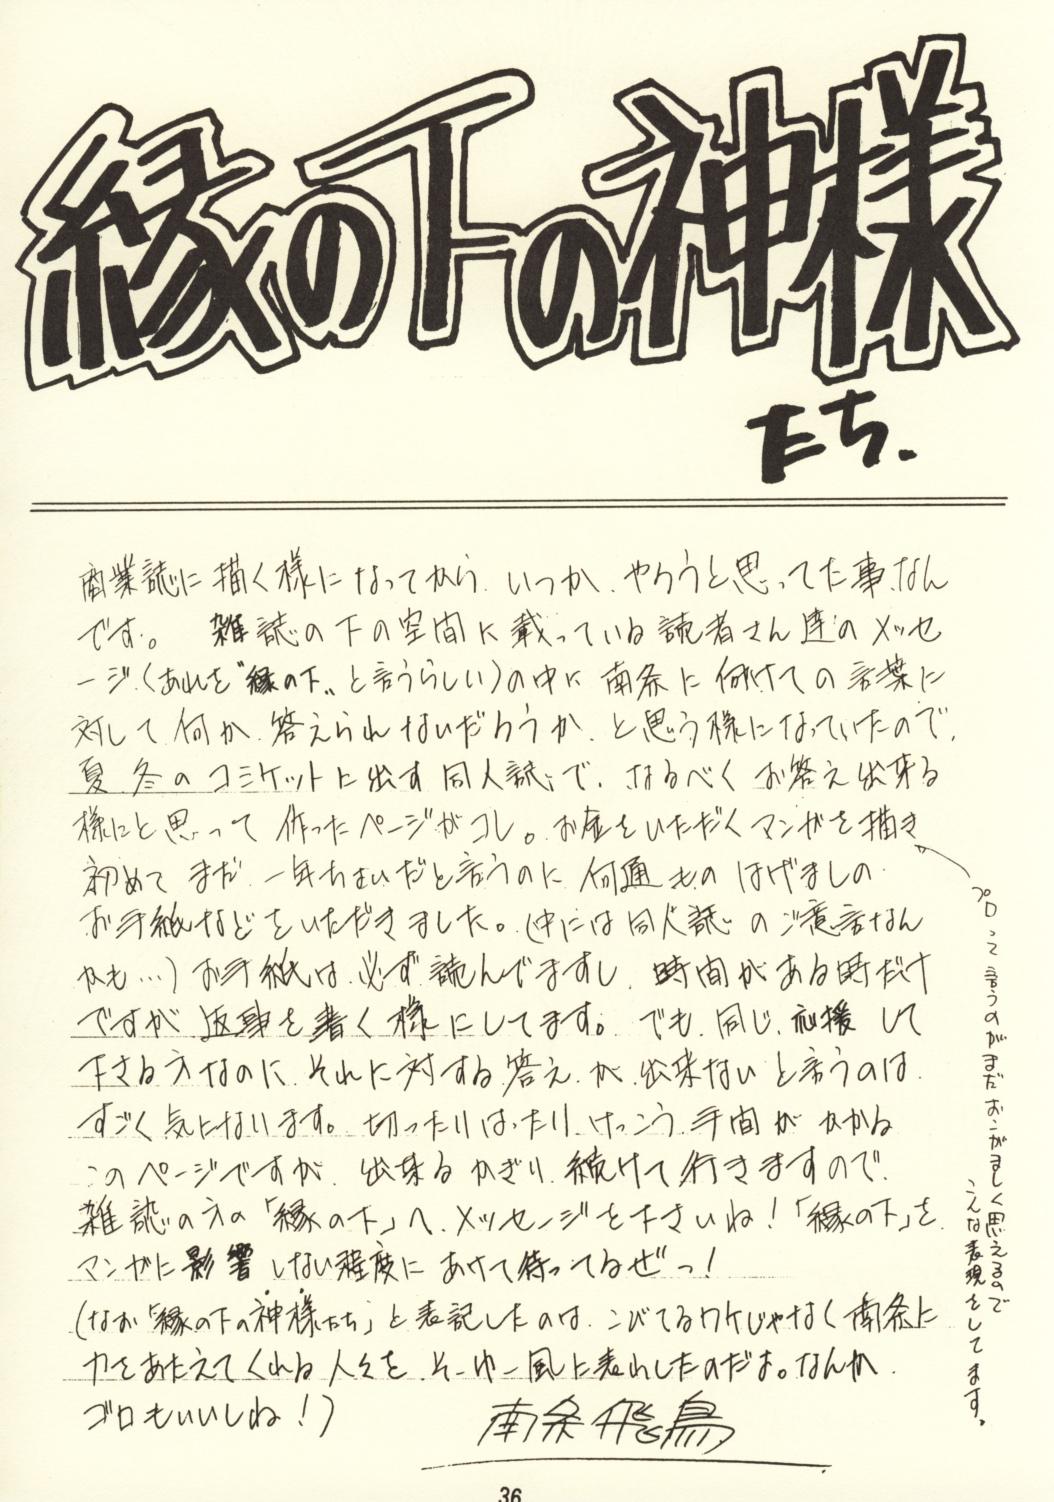 縁の下の神様
たち.
商業誌に描く様になってから、いつか、やろうと思ってた事なん
です。 雑誌の下の空間に載っている読者さん達のメッセ
ージ(あれを"縁の下"と言うらしい)の中に 南条に向けての言葉に
対して 何か 答えられないだろうか、と思う様になっていたので、
夏 冬の コミケットに出す同人誌で、なるべく お答え出来る
様にと思って 作ったページがコレ。お金をいただくマンガを描き
初めて まだ 一年ちょいだと言うのに 何通もの はげましの
お手紙などをいただきました。(中には同人誌のご意見なん
かも…)お手紙は必ず読んでますし、時間がある時だけ
ですが 返事を書く様にしてます。でも、同じ、応援して
下さる方なのに それに対する答えが出来ないと言うのは
すごく気になります。切ったりはったり、けっこう手間がかかる
このページですが、出来るかぎり続けて行きますので、
雑誌の方の「縁の下」へ、メッセージを下さいね!「縁の下」を
マンガに影響しない程度に あけて待ってるぜっ!
(なお「縁の下の神様たち」と表記したのは、こびてるワケじゃなく南条に
力をあたえてくれる人々を、そーゆー風に表わしたのだよ。なんか
ゴロもいいしね!)
南条飛鳥
プロって言うのがまだおこがましく思えるので
こんな表現をしてます。
36